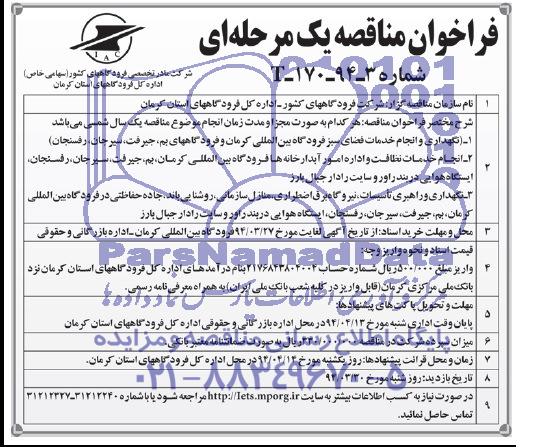 فراخوان مناقصه یک مرحله‌ای
شماره ۳ـ۹۴ـ۱۷۰ـT
IAC
شرکت مادر تخصصی فرودگاههای کشور(سهامی خاص)
اداره کل فرودگاههای استان کرمان
۱ نام سازمان مناقصه گزار: شرکت فرودگاههای کشور ـ اداره کل فرودگاههای استان کرمان
شرح مختصر فراخوان مناقصه: هر کدام به صورت مجزا و مدت زمان انجام موضوع مناقصه یک سال شمسی می‌باشد
۱ـ(نگهداری و انجام خدمات فضای سبز فرودگاه بین المللی کرمان و فرودگاههای بم، جیرفت، سیرجان، رفسنجان)
۲ ۲ـ انجام خدمات نظافت و اداره امور آبدارخانه ها فرودگاه بین المللی کرمان، بم، جیرفت، سیرجان، رفسنجان،
ایستگاه هوایی دربند راور و سایت رادار جبال بارز
۳ـ نگهداری و راهبری تأسیسات، نیروگاه برق اضطراری، منازل سازمانی، روشنایی باند، جاده حفاظتی در فرودگاه بین المللی
کرمان، بم، جیرفت، سیرجان، رفسنجان، ایستگاه هوایی دربند راور و سایت رادار جبال بارز
۳ محل و مهلت خرید اسناد: از تاریخ آگهی لغایت مورخ ۹۴/۰۳/۲۷ فرودگاه بین المللی کرمان ـ اداره بازرگانی و حقوقی
قیمت اسناد و نحوه واریز وجه:
۴ واریز مبلغ ۵۰۰/۰۰۰ ریال شماره حساب ۲۱۷۶۸۴۳۸۰۴۰۰۴ بنام درآمدهای اداره کل فرودگاههای استان کرمان نزد
بانک ملی مرکزی کرمان (قابل واریز در کلیه شعب بانک ملی ایران) به همراه معرفی نامه رسمی.
۵ مهلت و تحویل پاکت های پیشنهادها:
پایان وقت اداری شنبه مورخ ۹۴/۰۴/۱۳ در محل اداره بازرگانی و حقوقی اداره کل فرودگاههای استان کرمان
۶ میزان سپرده شرکت در مناقصه ۳۳۰/۰۰۰/۰۰۰ ریال به صورت ضمانتنامه معتبر بانکی
۷ زمان و محل قرائت پیشنهادها: روز یکشنبه مورخ ۹۴/۰۴/۱۴ در محل اداره کل فرودگاههای استان کرمان.
۸ تاریخ بازدید: روز شنبه مورخ ۹۴/۰۳/۳۰
۹ در صورت نیاز به کسب اطلاعات بیشتر به سایت http://Iets.mporg.ir مراجعه شود یا با شماره ۳۱۲۱۲۲۴۰ـ۳۱۲۱۲۳۲۷
تماس حاصل نمائید.
ParsNamadData
۰۲۱-۸۸۳۴۹۶۷۰-۵